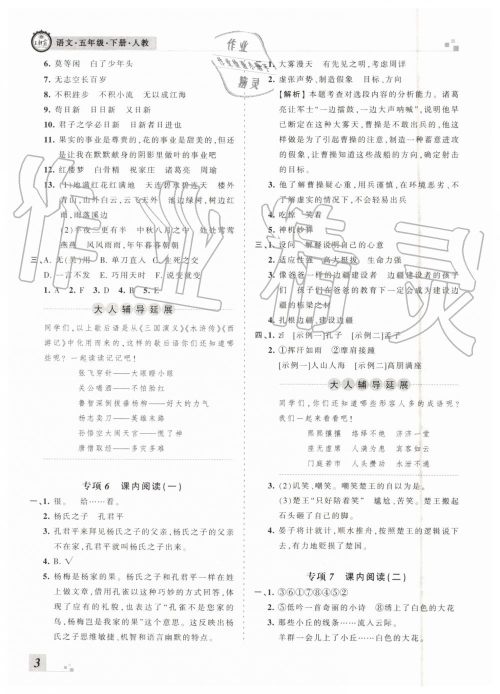 语文·五年级·下册·人教
6. 莫等闲 白了少年头
7. 无志空长百岁
8. 不积跬步 不积小流 无以成江海
9. 苟日新 日日新 又日新
10. 君子之学必日新 日新者日进也
11. 果实的事业是尊贵的,花的事业是甜美的,但还
是让我在默默献身的阴影里做叶的事业吧
12. 红楼梦 白骨精 祝家庄 诸葛亮 周瑜
13. (1)地满红花红满地 天连碧水碧连天 楼外
青山,山外白云,云飞天外 池边绿树,树边红
雨,雨落溪边
年年春好
燕燕,风风雨雨,年年暮暮朝朝
三、A. 无(美)用 B. 单刀直入 C. 生死之交
D. 一言不发 E. 巧用天时 F. 说变就变
1. E 2. F 3. D 4. B 5. E
大人辅导延展
同学们,以上歇后语是从《三国演义》《水浒传》《西
游记》中化用来的,这样的歇后语你们还知道
哪些呢?一起读读记记吧!
张飞穿针——大眼瞪小眼
关公喝酒——不怕脸红
鲁智深倒拔垂杨柳——好大的力气
杨志卖刀——英雄末路
孙悟空大闹天宫——慌了神
唐僧取经——多灾多难
专项6 课内阅读(一)
一、1. 很。 给……看。
2. 杨氏之子 孔君平
3. 孔君平来拜见杨氏之子的父亲,杨氏之子的父亲
不在家,孔君平就叫杨氏之子出来。
4. B. √
5. 杨梅是杨家的果。杨氏之子和孔君平一样,在
姓上做文章,但使用孔雀以这种巧妙的方式回答,体
现了应有的礼貌,也表达了“孔雀不是您家的
鸟,杨梅岂是我家的果”这个意思。这反映出杨
氏之子思维敏捷,机智和语言幽默的特点。
二、1. 大雾漫天 有先见之明,知道曹操不敢出兵。
2. 虚张声势,制造假象 目标、方向
【解析】本题考查对选段内容的分析能力。诸葛
亮让军士“一边擂鼓,一边大声呐喊”,说明他
早已断定在这种大雾天,曹操是不敢出兵的,他这
样做是为了引起曹操的注意,制造一种蓄意进
攻的假象,让曹操知道这些战船的方向,确定射击
的目标。
3. 他了解曹操疑心重,用兵谨慎,在环境恶劣,不
了解实情的情况下,不会轻易出兵
4. 吃惊 笑着
5. 神机妙算
三、1. 设问 解释说明自己的心意
2. 适应性强 高大挺拔 生命力强
3. 像爸爸一样的建设者 边疆 建设边疆者的孩
子们 孩子们在爸爸的教育下一定会成为建设边
疆的栋梁之材
4. 扎根边疆 建设边疆
四、1. zī [示例一]孔子 [示例二]孟子
2. ①挥汗如雨 ②摩肩接踵
[示例一]人山人海 [示例二]高朋满座
大人辅导延展
同学们,你们还知道哪些形容人多的成语呢?
熙熙攘攘 络绎不绝 济济一堂
座无虚席 人满为患 宾客如云
门庭若市 人头攒动 水泄不通
3. (2)讥笑、嘲笑。嘲笑楚王的自以为是。
(3)楚王“只好陪着笑” 尴尬、苦笑。楚王搬起
石头砸了自己的脚。
4. 晏子将计就计,顺水推舟,按照楚王的逻辑说下
去,最终维护了本国的尊严。
专项7 课内阅读(二)
一、1. ③⑥①⑦⑧④⑤②
2. ⑤低吟一首奇丽的小诗 ⑧绣上了白色的大花
3. 那些小丘的线条……流入云际。
羊群一会儿上了小丘……白色的大花。
3
作业精灵